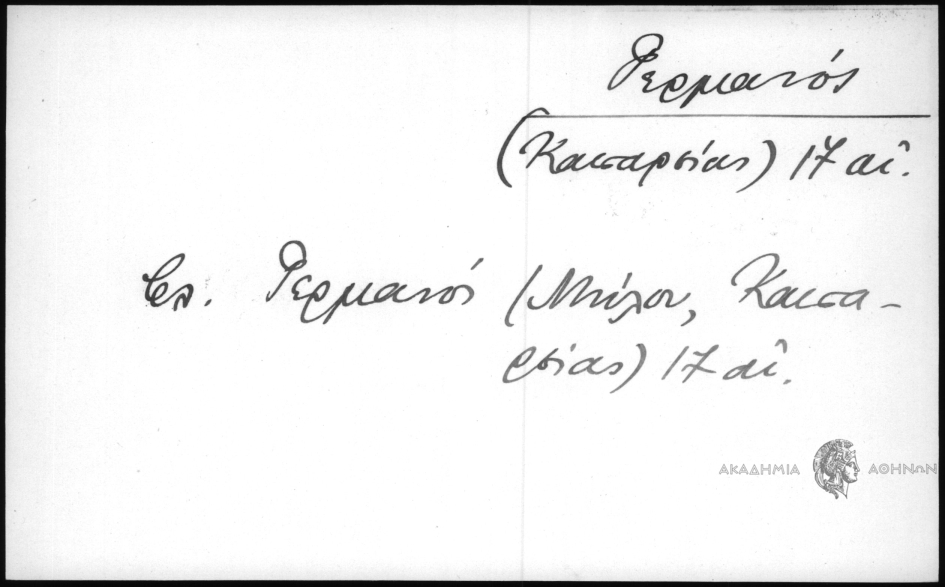 Γερμανός
(Καισαρείας) 17 αἰ.
βλ. Γερμανός (Μήλου, Καισα-
ρείας) 17 αἰ.
ΑΚΑΔΗΜΙΑ ΑΘΗΝΩΝ